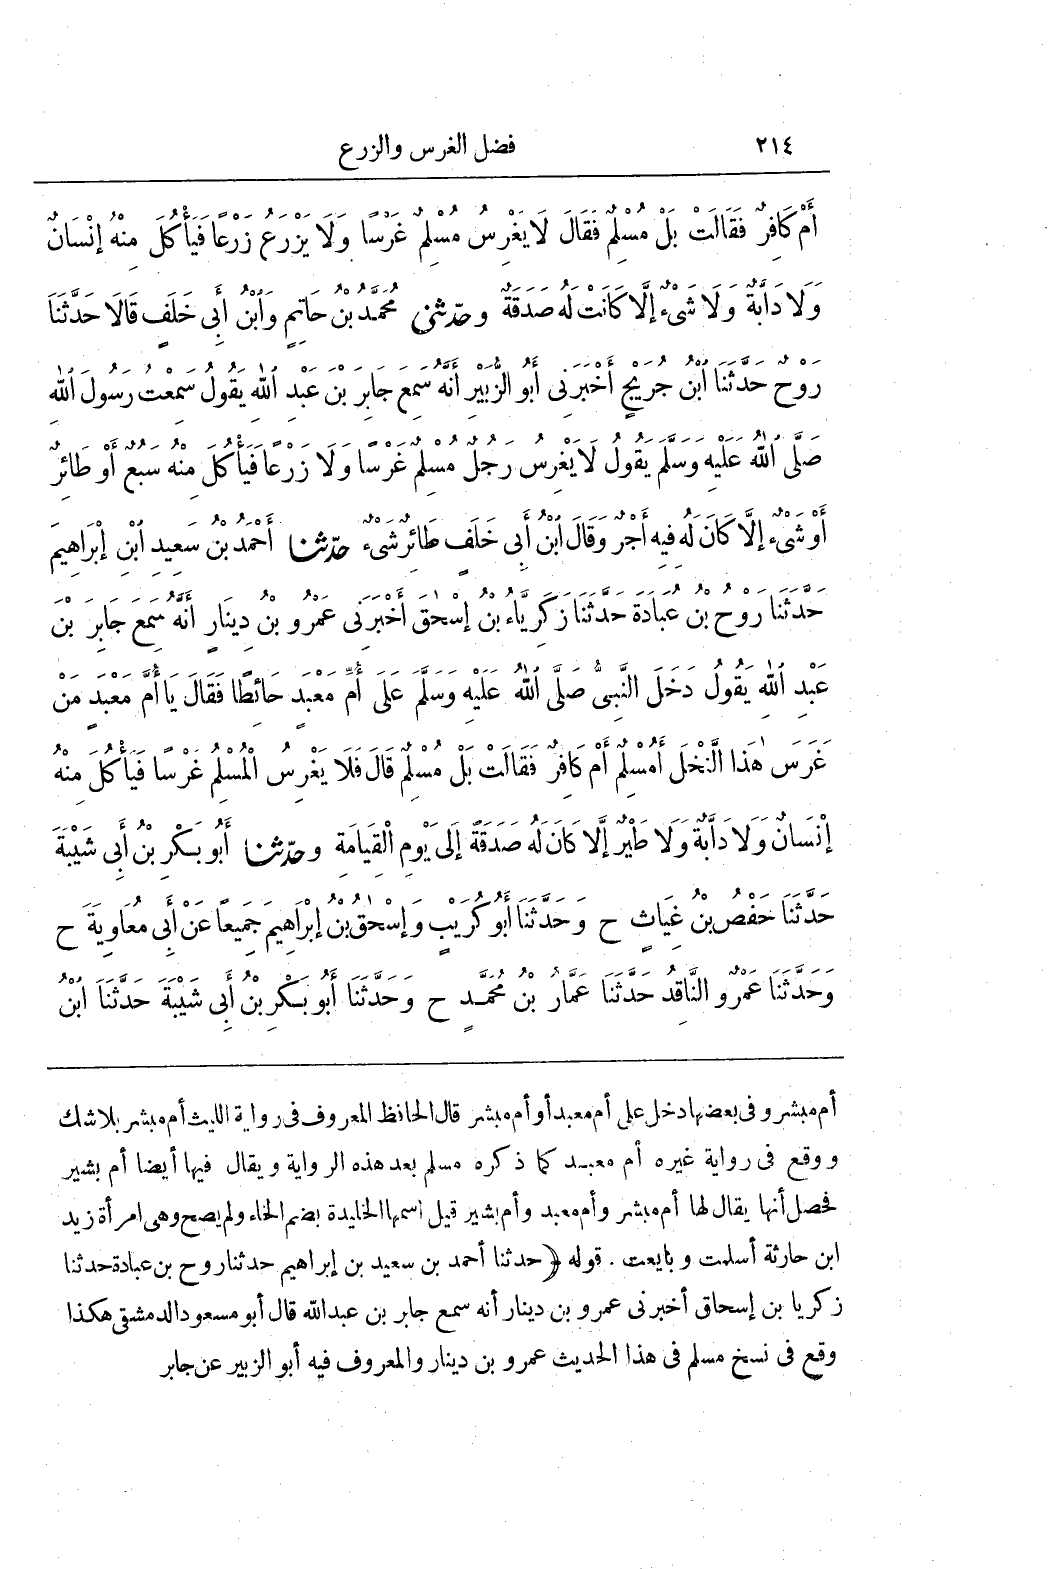 ٢١٤ فضل الغرس والزرع
أَمْ كَافِرٌ فَقَالَتْ بَلْ مُسْلِمٌ فَقَالَ لَا يَغْرِسُ مُسْلِمٌ غَرْسًا وَلَا يَزْرَعُ زَرْعًا فَيَأْكُلَ مِنْهُ إِنْسَانٌ
وَلَا دَابَّةٌ وَلَا شَىْءٌ إِلَّا كَانَتْ لَهُ صَدَقَةٌ وحدثنى مُحَمَّدُ بْنُ حَاتِمٍ وَٱبْنُ أَبِى خَلَفٍ قَالَا حَدَّثَنَا
رَوْحٌ حَدَّثَنَا ٱبْنُ جُرَيْجٍ أَخْبَرَنِى أَبُو الزُّبَيْرِ أَنَّهُ سَمِعَ جَابِرَ بْنَ عَبْدِ ٱللهِ يَقُولُ سَمِعْتُ رَسُولَ ٱللهِ
صَلَّى ٱللهُ عَلَيْهِ وَسَلَّمَ يَقُولُ لَا يَغْرِسُ رَجُلٌ مُسْلِمٌ غَرْسًا وَلَا زَرْعًا فَيَأْكُلَ مِنْهُ سَبُعٌ أَوْ طَائِرٌ
أَوْ شَىْءٌ إِلَّا كَانَ لَهُ فِيهِ أَجْرٌ وَقَالَ ٱبْنُ أَبِى خَلَفٍ طَائِرٌ شَىْءٌ حدثنا أَحْمَدُ بْنُ سَعِيدِ ٱبْنِ إِبْرَاهِيمَ
حَدَّثَنَا رَوْحُ بْنُ عُبَادَةَ حَدَّثَنَا زَكَرِيَّاءُ بْنُ إِسْحٰقَ أَخْبَرَنِى عَمْرُو بْنُ دِينَارٍ أَنَّهُ سَمِعَ جَابِرَ بْنَ
عَبْدِ ٱللهِ يَقُولُ دَخَلَ النَّبِىُّ صَلَّى ٱللهُ عَلَيْهِ وَسَلَّمَ عَلَى أُمِّ مَعْبَدٍ حَائِطًا فَقَالَ يَا أُمَّ مَعْبَدٍ مَنْ
غَرَسَ هٰذَا النَّخْلَ أَمُسْلِمٌ أَمْ كَافِرٌ فَقَالَتْ بَلْ مُسْلِمٌ قَالَ فَلَا يَغْرِسُ الْمُسْلِمُ غَرْسًا فَيَأْكُلَ مِنْهُ
إِنْسَانٌ وَلَا دَابَّةٌ وَلَا طَيْرٌ إِلَّا كَانَ لَهُ صَدَقَةً إِلَى يَوْمِ الْقِيَامَةِ وحدثنا أَبُو بَكْرِ بْنُ أَبِى شَيْبَةَ
حَدَّثَنَا حَفْصُ بْنُ غِيَاثٍ ح وَحَدَّثَنَا أَبُو كُرَيْبٍ وَإِسْحٰقُ بْنُ إِبْرَاهِيمَ جَمِيعًا عَنْ أَبِى مُعَاوِيَةَ ح
وَحَدَّثَنَا عَمْرٌو النَّاقِدُ حَدَّثَنَا عَمَّارُ بْنُ مُحَمَّدٍ ح وَحَدَّثَنَا أَبُو بَكْرِ بْنُ أَبِى شَيْبَةَ حَدَّثَنَا ٱبْنُ
أم مبشر وفى بعضها دخل على أم معبد أو أم مبشر قال الحافظ المعروف فى رواية الليث أم مبشر بلا شك
ووقع فى رواية غيره أم معبد كما ذكره مسلم بعد هذه الرواية ويقال فيها أيضا أم بشير
فحصل أنها يقال لها أم مبشر وأم معبد وأم بشير قيل اسمها الخليدة بضم الخاء ولم يصح وهى امرأة زيد
ابن حارثة أسلمت وبايعت . قوله ﴿حدثنا أحمد بن سعيد بن إبراهيم حدثنا روح بن عبادة حدثنا
زكريا بن إسحاق أخبرنى عمرو بن دينار أنه سمع جابر بن عبد الله قال أبو مسعود الدمشقى هكذا
وقع فى نسخ مسلم فى هذا الحديث عمرو بن دينار والمعروف فيه أبو الزبير عن جابر